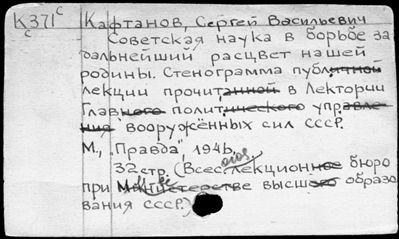 К371с Кафтанов, Сергей Васильевич
Советская наука в борьбе за
дальнейший расцвет нашей
родины. Стенограмма публичной
лекции прочитанной в Лектории
Главного политического управле
ния вооружённых сил СССР.
М., „Правда", 1946,
32 стр. (Всес. лекционное бюро
при Министерстве высшего образо
вания СССР.)